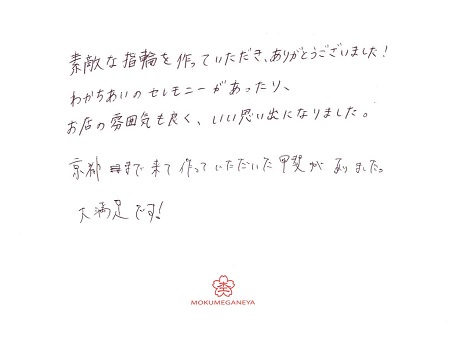 素敵な指輪を作っていただき、ありがとうございました!
わかちあいのセレモニーがあったり、
お店の雰囲気も良く、いい思い出になりました。
京都まで来て作っていただいた甲斐がありました。
大満足です!
MOKUMEGANEYA